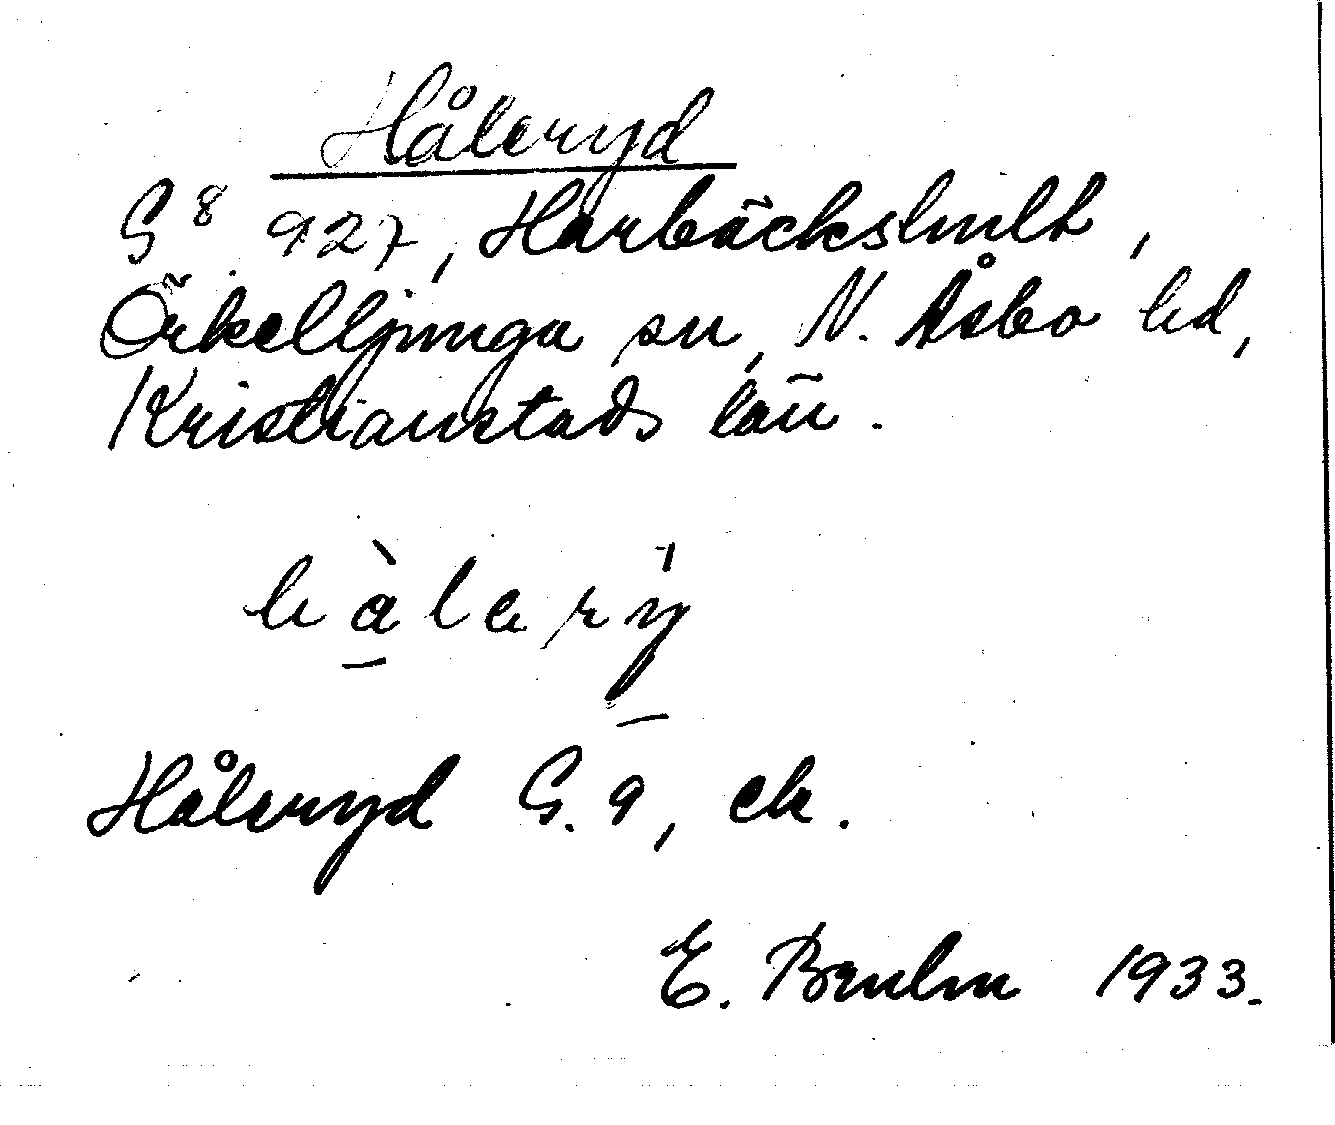 Håleryd
G 8 927, Harbäckshult,
Örkelljunga sn, N. Åsbo hd,
Kristianstads län.
hàlerý
Håleryd G. 9, ek.
E. 1933.